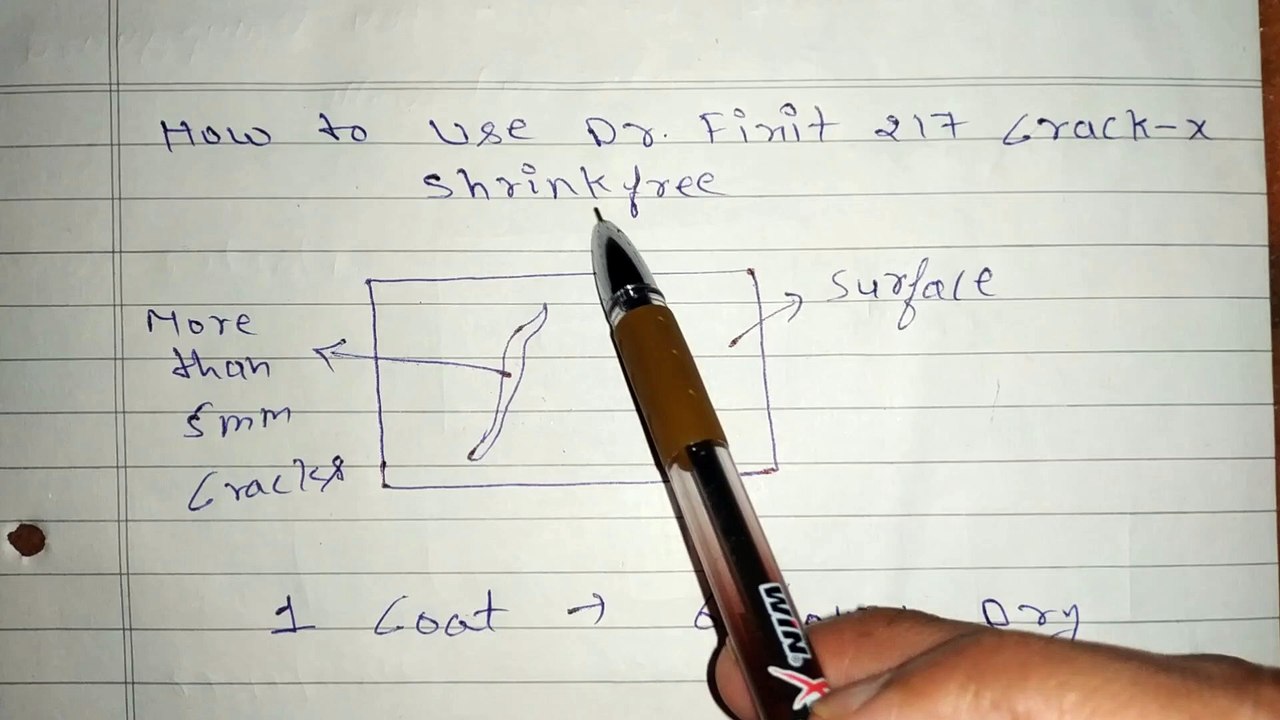 How to Use Dr. Fixit 217 Crack-x
Shrinkfree
Surface
More
than
5mm
Cracks
1 Coat → Dry
WIN